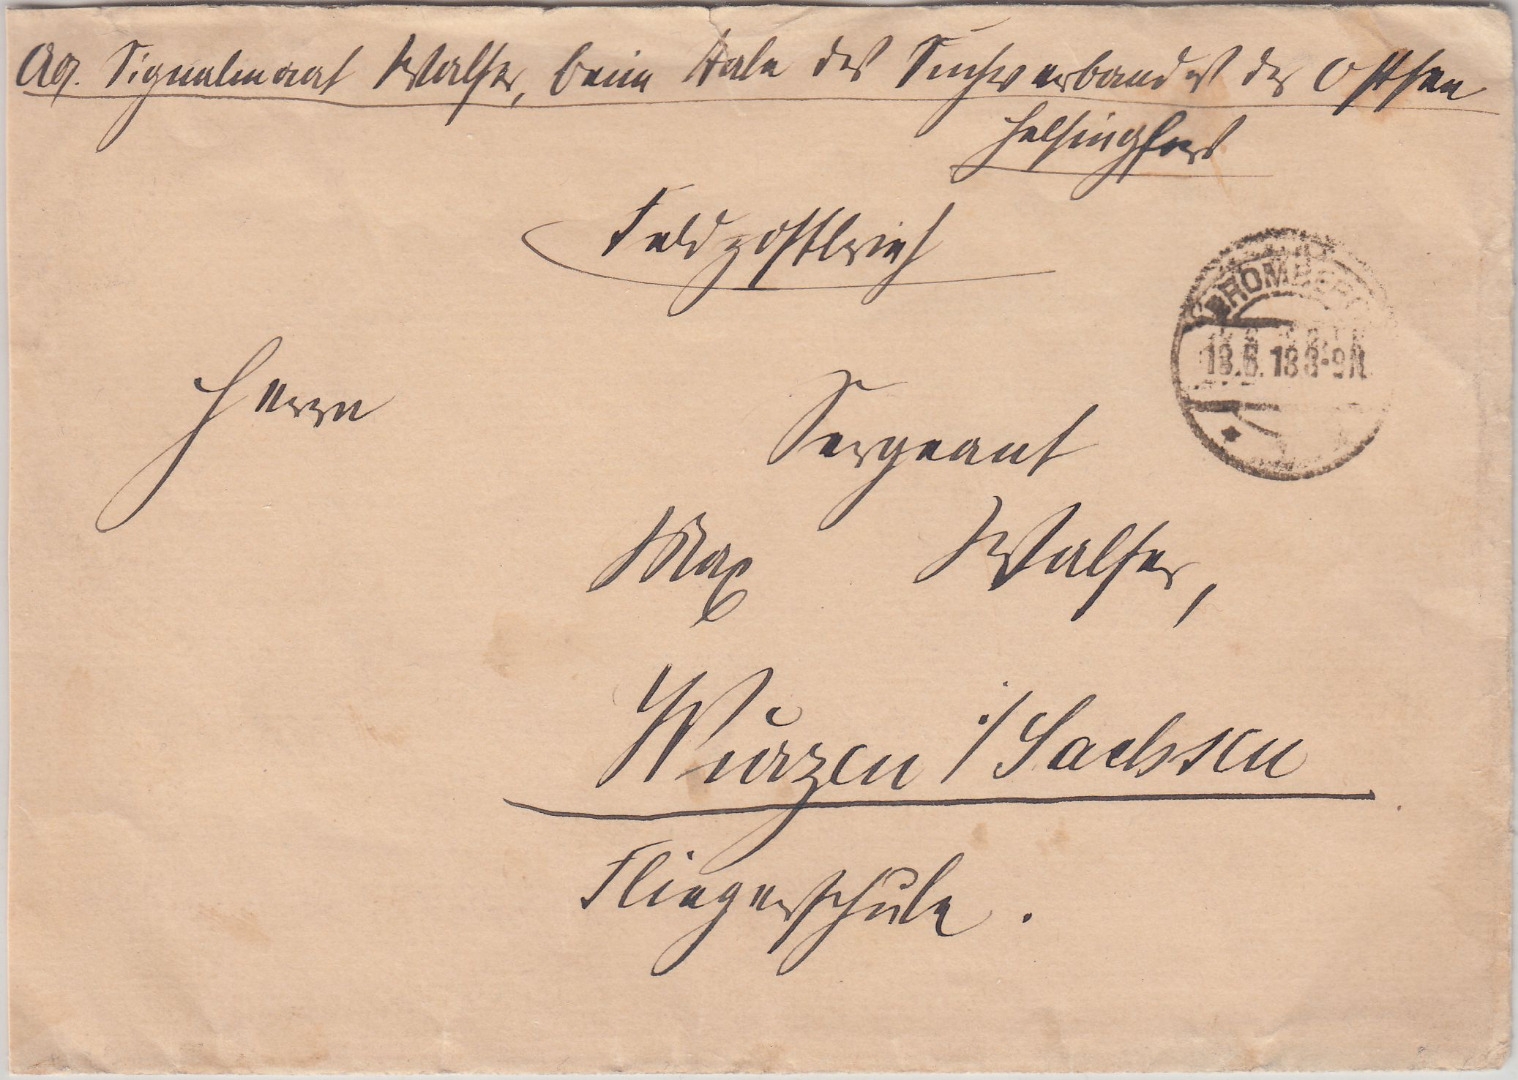 Abs. Signalmaat Walser, beim Stabe des Suchverbandes der Ostsee
Helsingfors
Feldpostbrief
BROMBERG
18.6.18 8-9N.
Herrn
Sergeant
Max Walser,
Wurzen i/Sachsen
Fliegerschule.